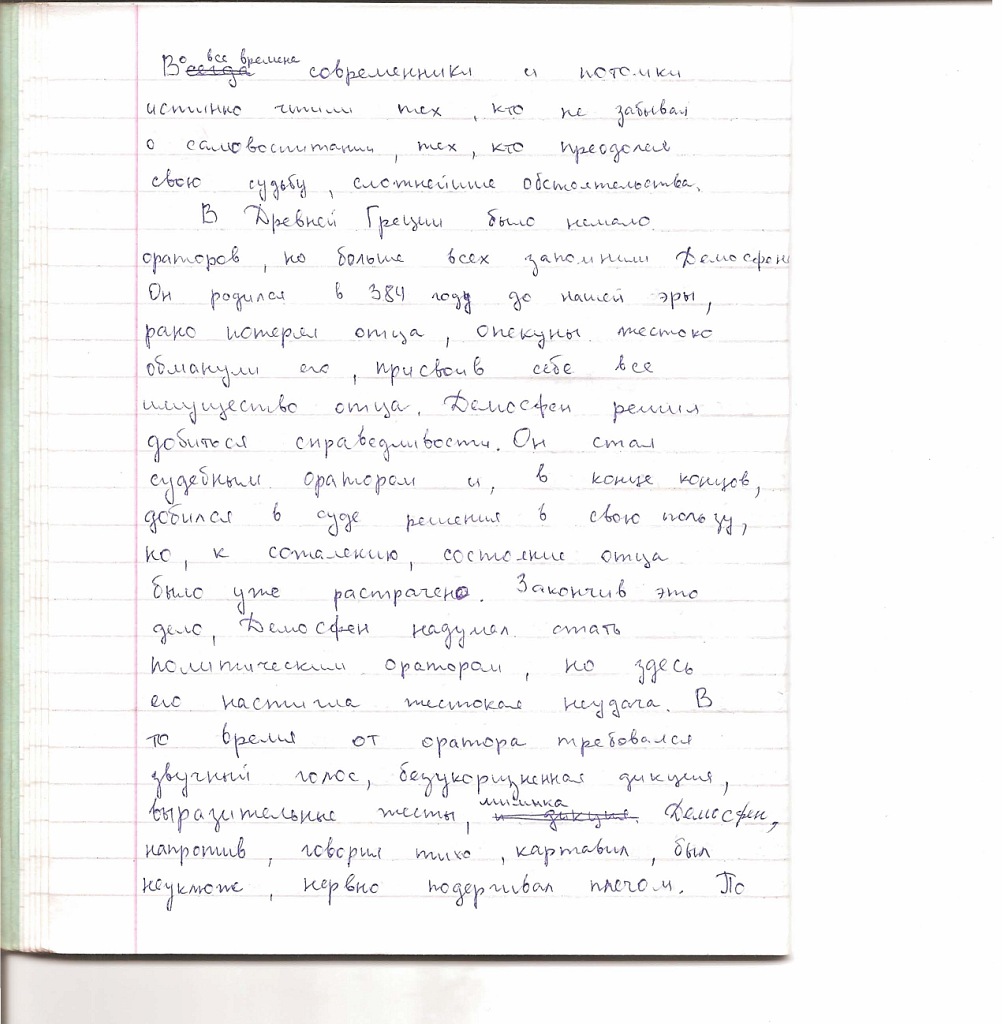 Во все времена современники и потомки
истинно чтили тех, кто не забывал
о самовоспитании, тех, кто преодолел
свою судьбу, сложнейшие обстоятельства.
В Древней Греции было немало
ораторов, но больше всех запомнили Демосфена
Он родился в 384 году до нашей эры,
рано потерял отца, опекуны жестоко
обманули его, присвоив себе все
имущество отца. Демосфен решил
добиться справедливости. Он стал
судебным оратором и, в конце концов,
добился в суде решения в свою пользу,
но, к сожалению, состояние отца
было уже растрачено. Закончив это
дело, Демосфен надумал стать
политическим оратором, но здесь
его настигла жестокая неудача. В
то время от оратора требовался
звучный голос, безукоризненная дикция,
выразительные жесты, мимика Демосфен,
напротив, говорил тихо, картавил, был
неуклюже, нервно подергивал плечом. По